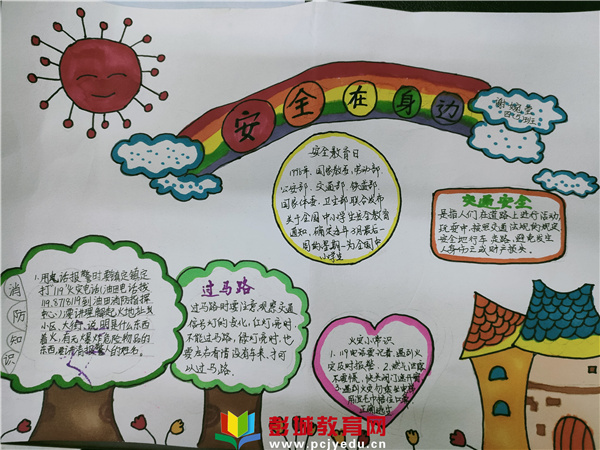 安全在身边
安全教育日
1996年，国家教委、劳动部、
公安部、交通部、铁道部、
国家体委、卫生部联合发布
关于全国中小学生安全教育
通知，确定每年3月最后一
周的星期一为全国中
小学生
交通安全
是指人们在道路上进行活动、
玩耍中，按照交通法规的规定
安全地行车走路，避免发生
人身伤亡或财产损失。
消防知识
1、用电话报警时要镇定
打119火灾电话(油田电话找
119.8718119到油田消防指挥
中心)，要讲理解起火地址
小区、大街，说明是什么东西
着火，有无爆炸危险物品的
东西
过马路
过马路时要注意观察交通
信号灯的变化，红灯亮时
不能过马路，绿灯亮时，也
要左右看情况有车来，才可
以过马路。
火灾小常识
1、119电话要记清，遇到火
灾及时报警。2、燃气泄露
不要慌，快关阀门速开窗
3、遇到火灾勿乘坐电梯
用湿毛巾捂住口鼻
正确逃生
彭城教育网
www.pcjyedu.cn